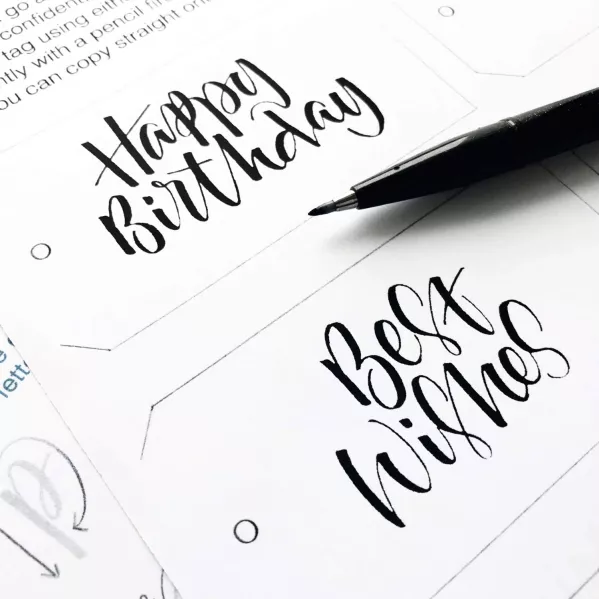 go a
confident
tag using eith
ntly with a pencil fir
ou can copy straight on
Happy
Birthday
Best
Wishes
lett